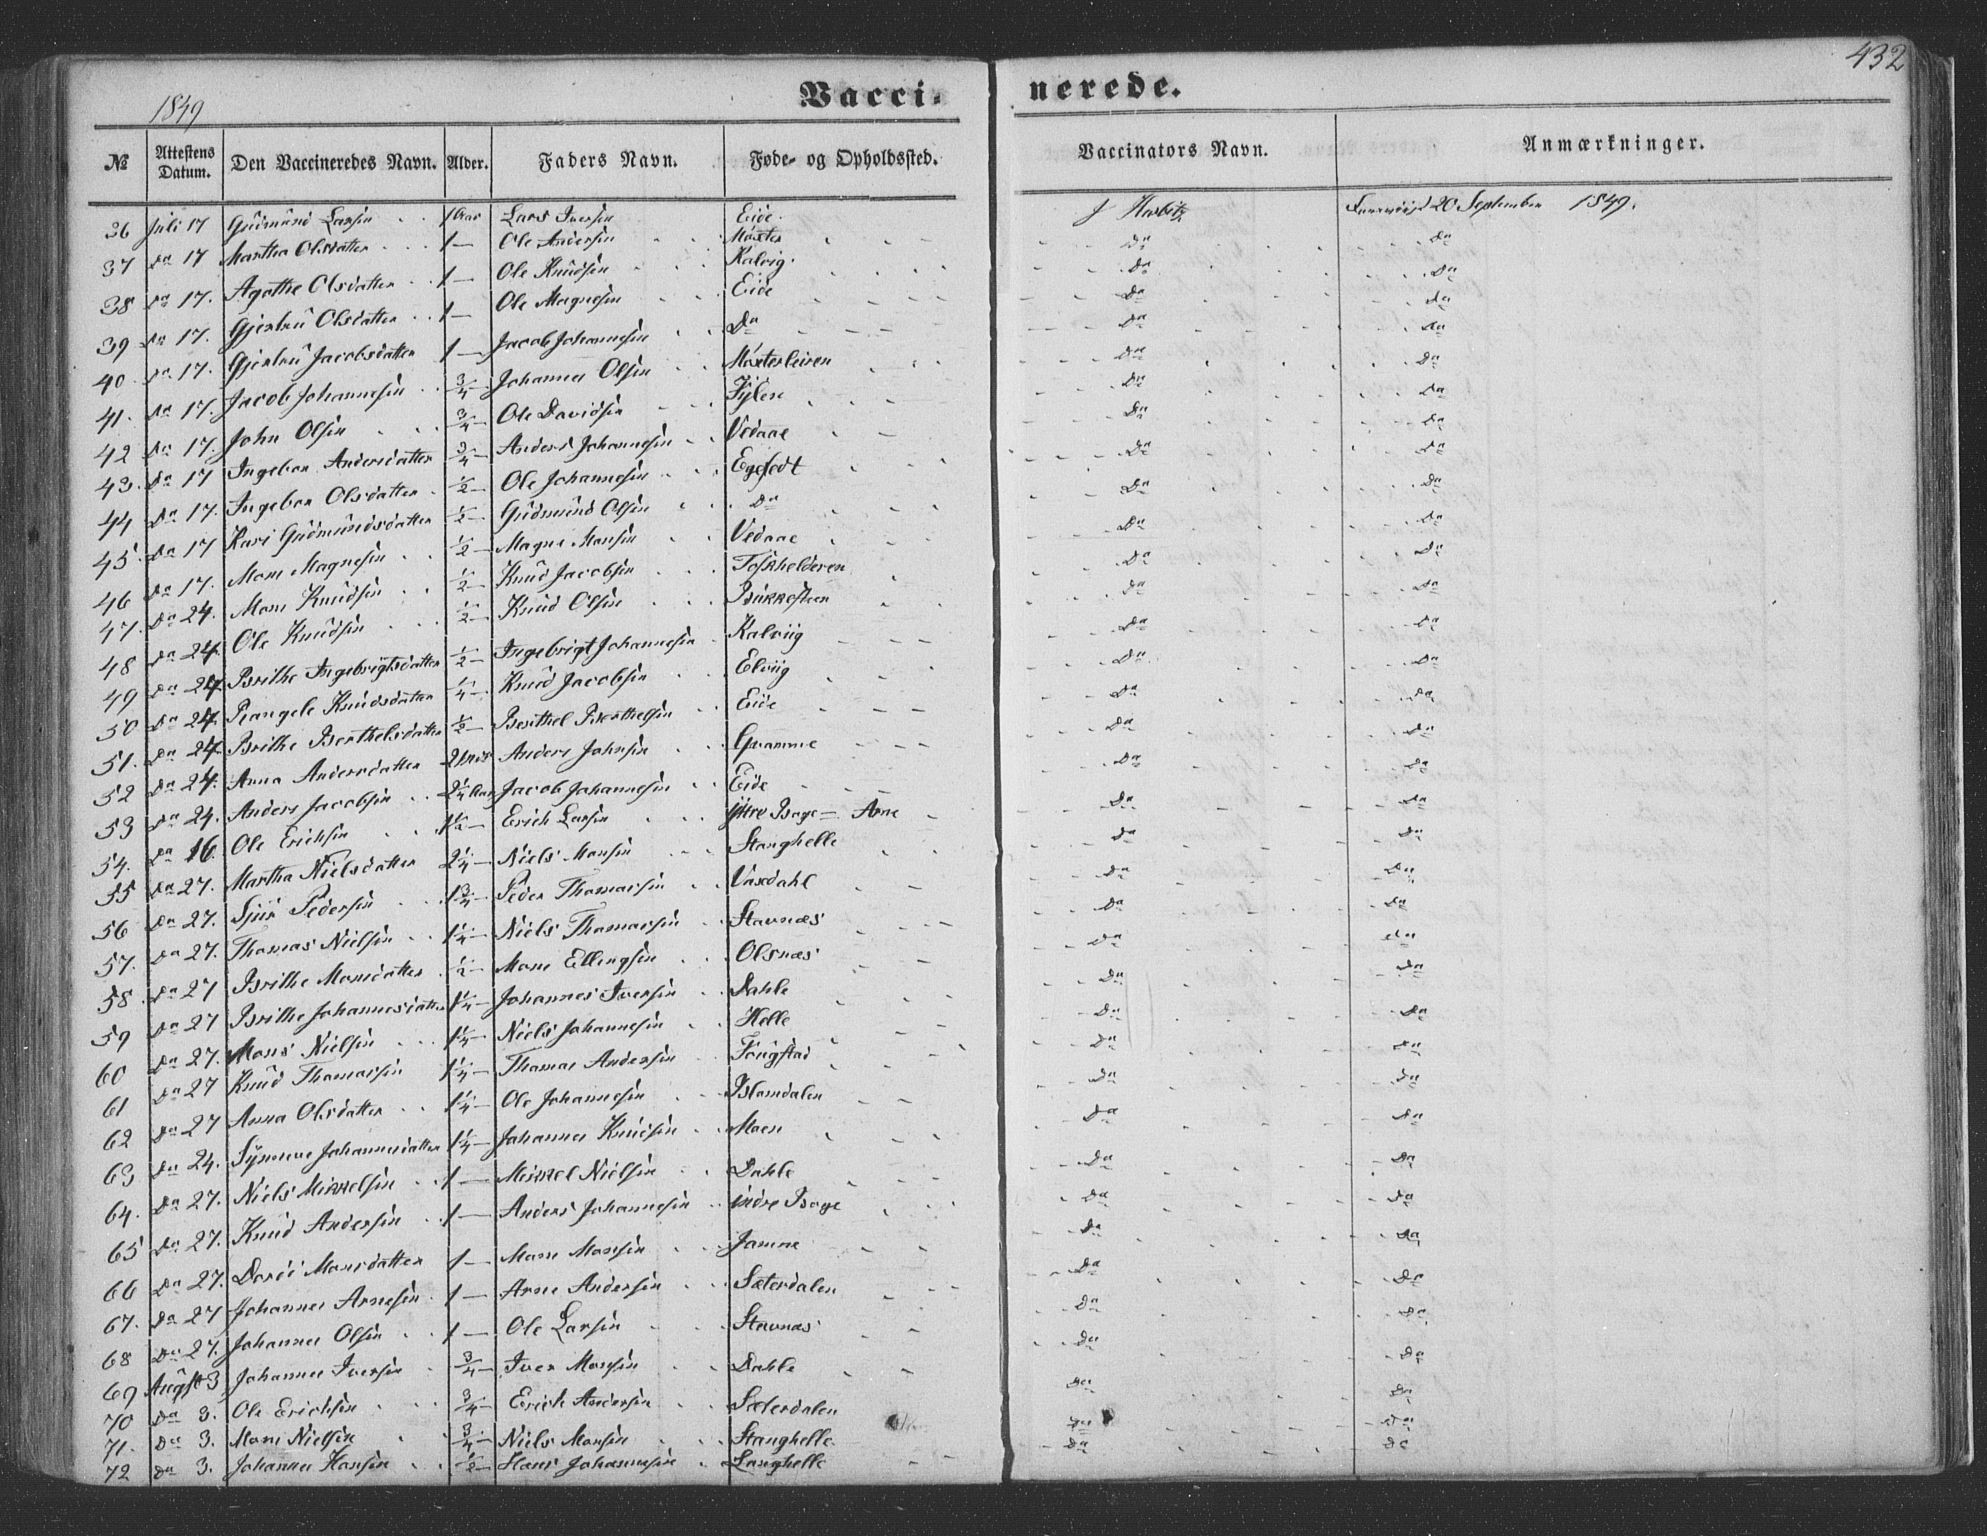 432
1849
Vaccinerede.
№ Attestens Datum. Den Vaccineredes Navn. Alder. Faders Navn. Føde- og Opholdssted. Vaccinators Navn. Anmærkninger.
36 Juli 17 Gudmund Larsen 1 Aar Lars Iversen Eide. J 20 September 1849.
37 Do 17 Martha Olsdatter 1 — Ole Andersen Moster Do Do
38 Do 17. Agathe Olsdatter 1 — Ole Knudsen Kalvig. Do Do
39 Do 17. Gjertru Olsdatter 1 — Ole Magnesen Eide Do Do
40 Do 17. Gjertru Jacobsdatter 1 — Jacob Johannesen Do Do Do
41. Do 17. Jacob Johannesen 3/4 — Johannes Olsen Mosterleiren Do Do
42 Do 17. John Olsen 3/4 — Ole Davidsen Do Do
43. Do 17 Ingebor Andersdatter 3/4 — Anders Johannesen Vedaae Do Do
44 Do 17. Ingebor Olsdatter 1/2 — Ole Johannesen Do Do
45. Do 17 Kari Gudmundsdatter 1/2 — Gudmund Olsen Do Do Do
46 Do 17. Mons Magnesen 1/2 — Magne Monsen Vedaae Do Do
47. Do 24. Mons Knudsen 1/2 — Knud Jacobsen Do Do
48 Do 24. Ole Knudsen 1/2 — Knud Olsen Do Do
49 Do 24. Brithe Ingebrigtsdatter 1/2 — Ingebrigt Johannesen Kalviig Do Do
50 Do 24. Knudsdatter 1/4 — Knud Jacobsen Elviig Do Do
51. Do 24. Brithe Berthelsdatter 1/2 — Berthel Berthelsen Eide Do Do
52 Do 24. Anna Andersdatter Anders Johnsen Gramme Do Do
53 Do 24. Anders Jacobsen 2 1/4 Aar Jacob Johannesen Eide Do Do
54. Do 16. Ole Erichsen 1 1/2 — Erich Larsen Ytre Bage — Arne Do Do
55 Do 27. Martha Nielsdatter 2 1/4 — Niels Monsen Stanghelle Do Do
56 Do 27. Sjur Pedersen 1 3/4 — Peder Thomassen Vaxdahl Do Do
57. Do 27. Thomas Nielsen 1 1/4 — Niels Thomassen Stavnæs Do Do
58. Do 27 Brithe Monsdatter 1/2 — Mons Ellingsen Olsnæs Do Do
59 Do 27 Brithe Johannesdatter 1 1/4 — Johannes Iversen Dahle Do Do
60 Do 27. Mons Nielsen 1 1/4 — Niels Johannesen Helle Do Do
61 Do 27 Knud Thomassen 1 1/4 — Thomas Andersen Do Do
62 Do 27 Anna Olsdatter 1 1/4 — Ole Johannesen Do Do
63 Do 24. Synneve Johannesdatter 1 1/4 — Johannes Knudsen Moen Do Do
64. Do 27. Niels Mikkelsen 1 — Mikkel Nielsen Dahle Do Do
65 Do 27. Knud Andersen 1 — Anders Johannesen Indre Bage Do Do
66 Do 27. Dordi Monsdatter 1 — Mons Monsen Jamne Do Do
67. Do 27 Johannes Arnesen 1 — Arne Andersen Sæterdalen Do Do
68 Do 27. Johannes Olsen 1 — Ole Larsen Stavnæs Do Do
69 August 3 Johannes Iversen 3/4 — Iver Monsen Dahle Do Do
70 Do 3. Ole Erichsen 3/4 — Erich Andersen Sæterdalen Do Do
71. Do 3. Mons Nielsen 3/4 — Niels Monsen Stanghelle Do Do
72 Do 3. Johannes Hansen 1/2 — Hans Johannesen Langhelle Do Do